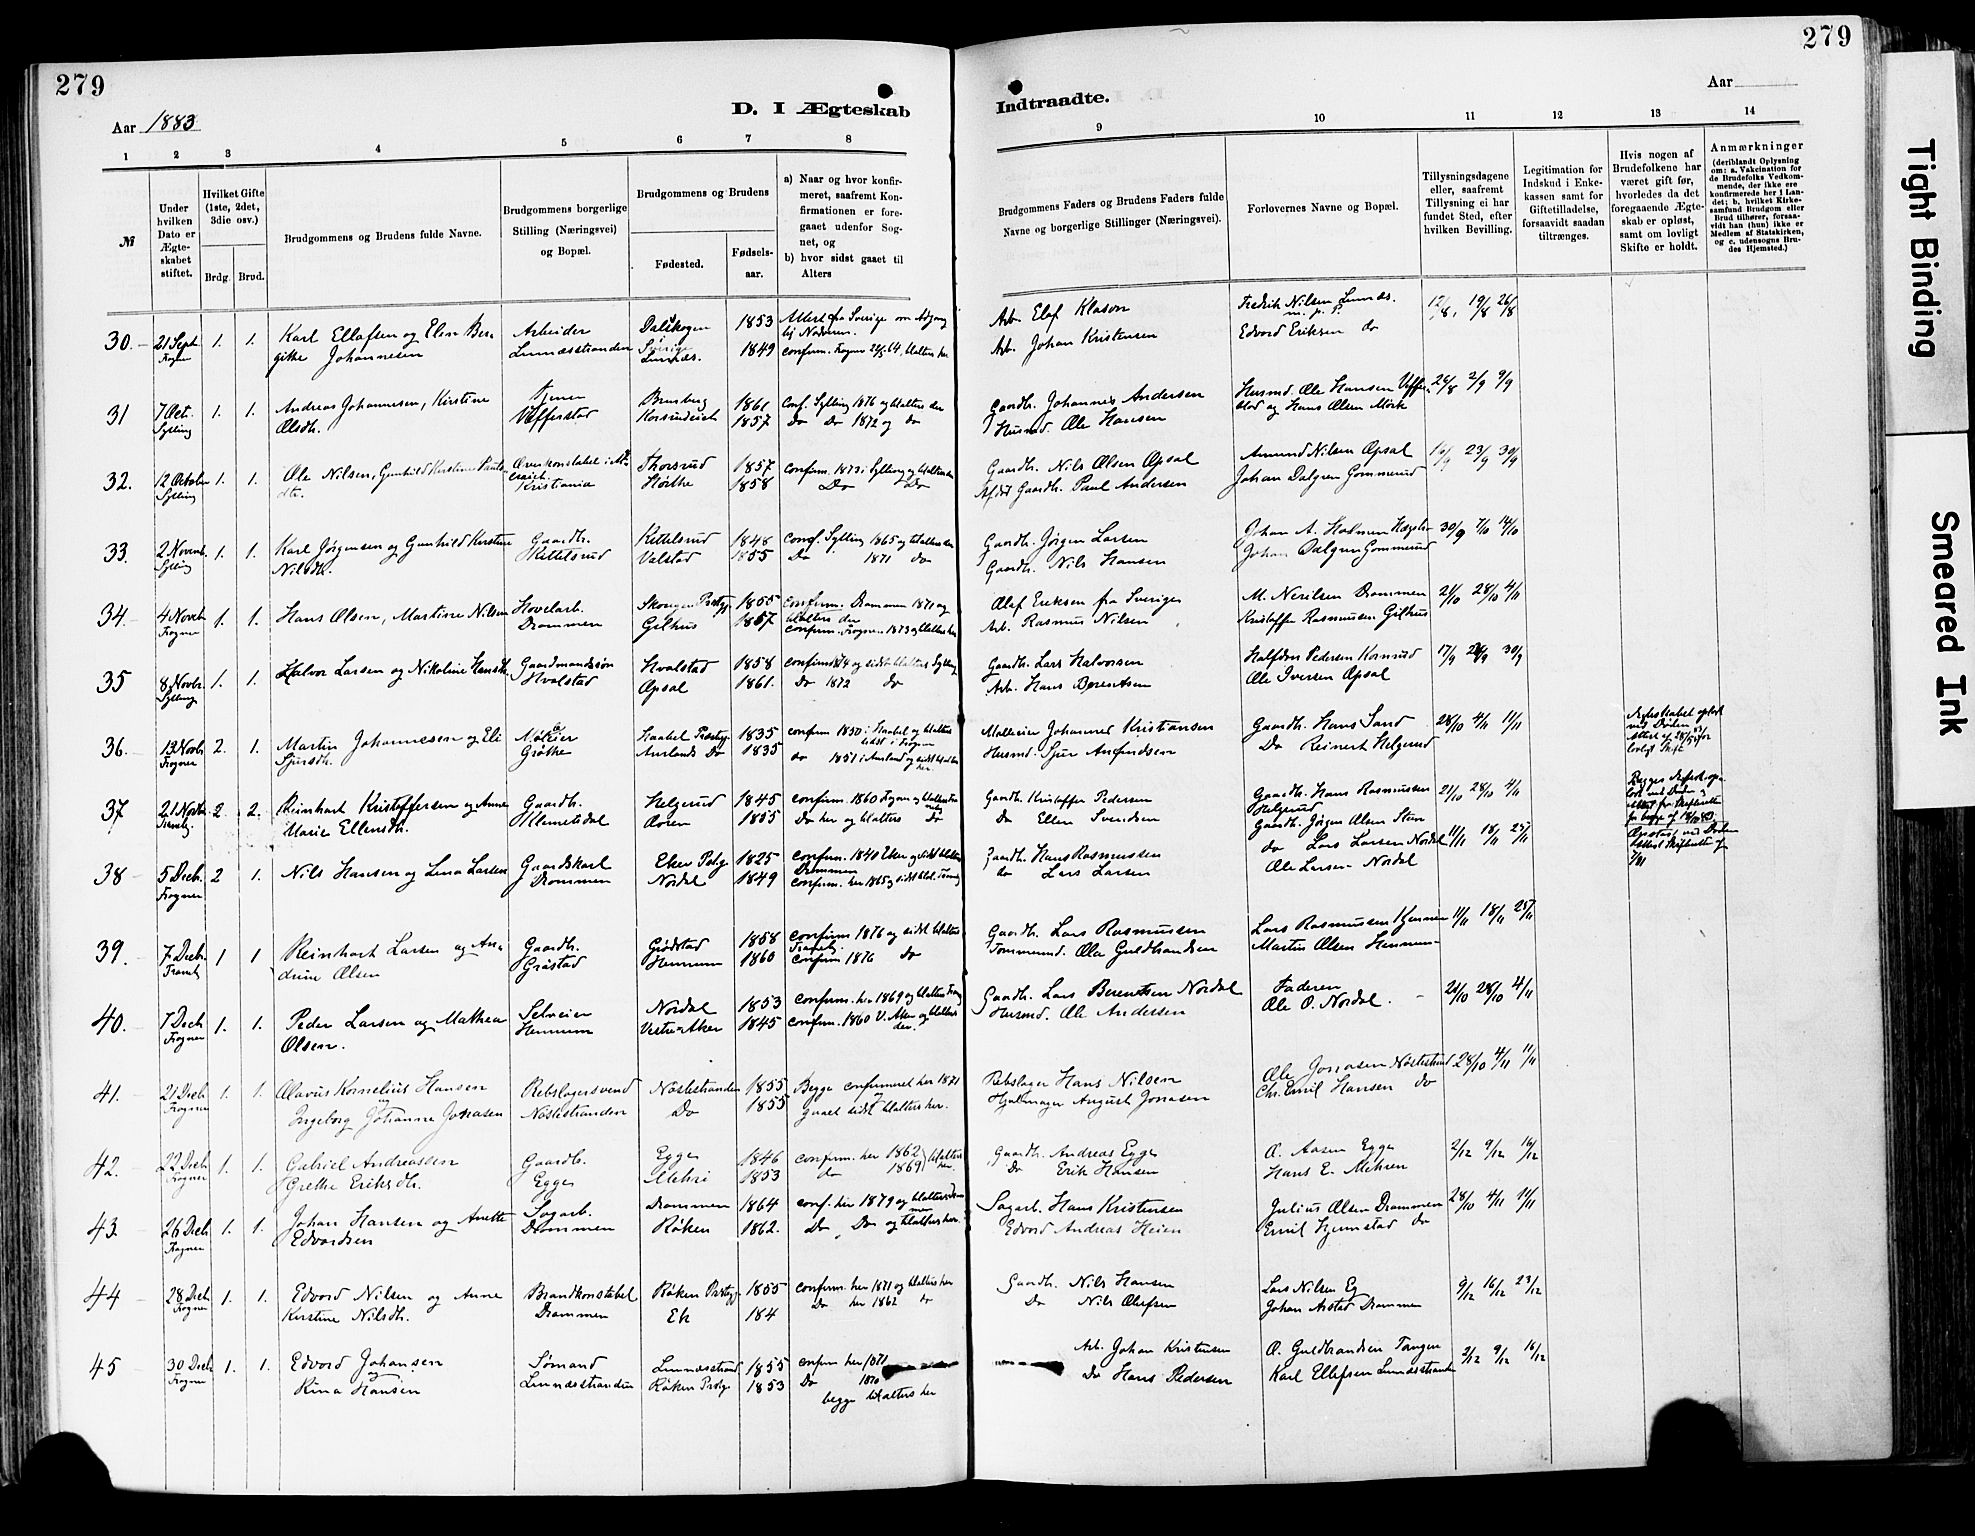 279
279
Aar 1883
D. I Ægteskab
Indtraadte.
Aar
1 2 3 4 5 6 7 8
9 10 11 12 13 14
№
Under hvilken Dato er Ægteskabet stiftet.
Hvilket Gifte (1ste, 2det, 3die osv.)
Brdg. Brud.
Brudgommens og Brudens fulde Navne.
Brudgommens borgerlige Stilling (Næringsvei) og Bopæl.
Brudgommens og Brudens
Fødested.
Fødselsaar.
a) Naar og hvor konfirmeret, saafremt Konfirmationen er foregaaet udenfor Sognet, og
b) hvor sidst gaaet til Alters
Brudgommens Faders og Brudens Faders fulde Navne og borgerlige Stillinger (Næringsvei).
Forlovernes Navne og Bopæl.
Tillysningsdagene eller, saafremt Tillysning ei har fundet Sted, efter hvilken Bevilling.
Legitimation for Indskud i Enkekassen samt for Giftetilladelse, forsaavidt saadan tiltrænges.
Hvis nogen af Brudefolkene har været gift før, hvorledes da det foregaaende Ægteskab er opløst, samt om lovligt Skifte er holdt.
Anmærkninger
(deriblandt Oplysning om: a. Vakcination for de Brudefolks Vedkommende, der ikke ere konfirmerede her i Landet; b. hvilket Kirkesamfund Brudgom eller Brud tilhører, forsaavidt han (hun) ikke er Medlem af Statskirken, og c. udensogns Brudes Hjemsted.)
30. 21 Sept. 1. 1. Karl Ellafsen og Elen Ber- Arbeider 1853 Attest fra Sverige om Adgang Arb. Elef Klason Fredrik Nilsen Linnæs. 12/8, 19/8 26/8
Frogner gitte Johannesen Linnæsstranden Sverige Linnæs. 1849 confirm. Frogner 64, til alters her Arb. Johan Kristensen Edvard Eriksen do
31 7 Oct. 1. 1. Andreas Johannesen, Kirstine 1861 Conf. Sylling 1876 og til alters der Gaardb. Johannes Andersen Husmd. Ole Hansen 26/8 2/9 9/9
Sylling Olsdtr. 1857 Do Do 1872 og do Husmd. Ole Hansen og Hans Olsen Mörk
32. 12 October 1. 1. Ole Nilsen, Gunhild Kirstine Pauls- Overkonstabel i Thorsrud 1857 confirm. 1873 i Sylling og til alters der Gaardb. Nils Olsen Opsal Amund Nilsen Opsal 16/9 23/9 30/9
Sylling dtr. Kristiania 1858 Do Do Gaardb. Paul Andersen Johan Dalgren Gommerud
33. 2 Novemb. 1. 1. Karl Jörgensen og Gunhild Kirstine Gaardb. Kittelsrud 1848 Conf. Sylling 1865 og til alters der Gaardb. Jörgen Larsen Johan A. Holmen 30/9 7/10 14/10
Sylling Nilsdtr. Kittelsrud Valstad 1855 Do 1871 do Gaardb. Nils Hansen Johan Dalgren Gommerud
34. 4 Novbr 1. 1. Hans Olsen, Martine Nilsen Hovelarb. Skoger Præstgj. 1855 Confirm. Drammen 1871 og til alters der Olaf Eriksen fra Sverige M. Nerilsen Drammen 21/10 28/10 4/11
Frogner Drammen Gilhus 1857 confirm. Frogner 1873 og til alters her Arb. Rasmus Nilsen Kristoffer Rasmussen Gilhus
35 8 Novbr. 1. 1. Halvor Larsen og Nikoline Hansdtr. Gaardmandssön Hvalstad 1858 confirm 1874 og sidst til alters Sylling Gaardb. Lars Halvorsen Halfdan Pedersen Kornrud 17/9 24/9 30/9
Sylling Hvalstad Opsal 1861. Do 1872 do Arb. Hans Berentsen Ole Iversen Opsal
36. 13 Novbr. 2. 1. Martin Johannesen og Eli Haabøl Præstgj. 1835 confirm 1850 i Haabøl og til alters sidst i Frogner Johannes Kristiansen Gaardb. Hans Sand 28/10 4/11 11/11 Ægteskabet opløst ved Döden
Frogner Sjursdtr. Aurlands Do 1835 do 1851 i Aurland og sidst til alters her. Husmd. Sjur Amfindsen Do Reinert Helgerud
37 21 Novbr. 2. 2. Reinhart Kristoffersen og Anne Gaardb. Helgerud 1845 confirm. 1860 Frogner og til alters Gaardb. Kristoffer Pedersen Gaardb. Hans Rasmussen Helgerud 21/10 28/10 4/11 Begges Ægtesk. opløst ved Döden
Tranby Marie Ellensdtr. Klemetsdal Aoren 1855 Do her og til alters do Do Ellen Svendsen Gaardb. Jörgen Olsen
38 5 Decb. 2 1. Nils Hansen og Lina Larsen Gaardskarl Eker Prstgj. 1825 confirm. 1840 Eker og sidst til alters Drammen Gaardb. Hans Rasmussen do Lars Larsen Nordal 11/11 18/11 25/11 Opløst ved Döden
Frogner Drammen Nordal 1849 confirm. her 1865 og sidst til al. Tranby do Lars Larsen Ole Larsen Nordal
39. 7 Decb. 1 1 Reinhart Larsen og An- Gaardb. Grödstad 1858 confirm 1876 og sidst til alters Tranby Gaardb. Lars Rasmussen Lars Rasmussen Hennum 11/11 18/11 25/11
Tranby drine Olsen Gröstad Hennum 1860 confirm 1876 do Tommermd. Ole Guldbrandsen Martin Olsen Hennum
40. 7 Decb. 1. 1. Peder Larsen og Mathea Selveier Nordal 1853 confirm. her 1869 og til alters Tranby Gaardb. Lars Berentsen Nordal Faderen 21/10 28/10 4/11
Frogner Olsen. Hennum Vestre Aker 1845 confirm. 1860 V. Aker og til alters der. Husmd. Ole Andersen Ole O. Nordal.
41. 21 Decb. 1. 1. Olavus Kornelius Hansen og Rebslagersvend Næstestranden 1855 Begge confirmeret her 1871 og Rebslager Hans Nilsen Ole Jonasen Nöstestrand 28/10 4/11 11/11
Frogner Ingeborg Johanne Jonasen Næstestranden Do 1855 gaaet sidst til alters her. Hjulmager August Jonasen Chr. Emil Hansen do
42. 22 Decb. 1. 1. Gabriel Andreassen Gaardb. Egge 1846 confirm. her 1862 til alters her. Gaardb. Andreas Egge O. Aasen Egge 2/12 9/12 16/12
Frogner Grethe Eriksdtr. Egge Mehri 1853 do 1869 Do Erik Hansen Hans E. Mehren
43. 26 Decb. 1. 1. Johan Hansen og Anette Sagarb. Drammen 1864 conf. her 1879 og til alters Drammen Sagarb. Hans Kristensen Julius Olsen Drammen 28/10 4/11 11/11
Frogner Edvardsen Drammen Röken 1862. Do Do og til alters her. Edvard Andreas Heien Emil Hjemstad do
44 28 Decb. 1. 1. Edvard Nilsen og Anne Brandkonstabel Röken Prstgj. 1855 confirm. her 1871 og til alters her Gaardb. Nils Hansen Lars Nilsen Eg 9/12 16/12 23/12
Frogner Kirstine Nilsdtr. Drammen Ek 184 Do her 1862 do Do Nils Olefsen Johan Aistad Drammen
45 30 Decb. 1. 1. Edvard Johansen og Sömand Linnæsstrand 1855 confirm her 1871 Arb. Johan Kristensen O. Guldbrandsen Tangen 2/12 9/12 16/12
Frogner Rina Hansen Linnæsstranden Röken Prstgj 1853 Do 1870 begge til alters her Do Hans Pedersen Karl Ellefsen Linnæsstranden
Tight Binding
Smeared Ink